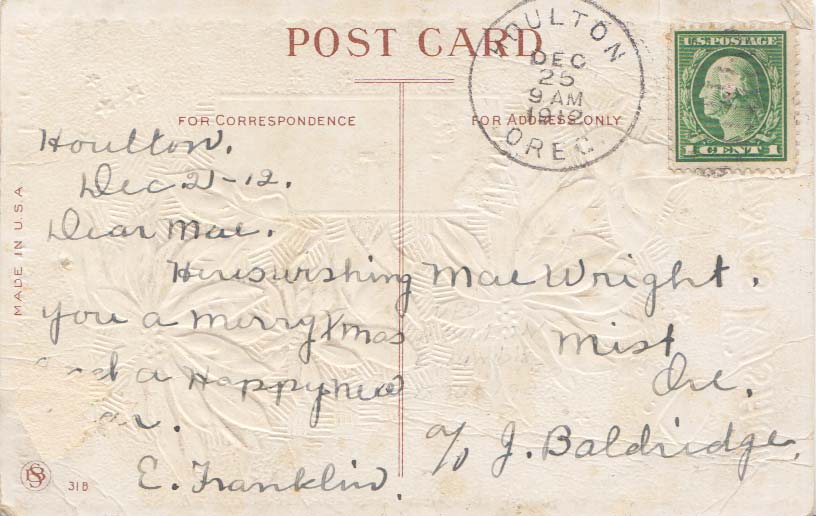 POST CARD
HOULTON
DEC
25
9 AM
1912
OREG
U.S. POSTAGE
1 CENT 1
FOR CORRESPONDENCE
FOR ADDRESS ONLY
MADE IN U.S.A
Houlton.
Dec 21-12.
Dear Mae.
Here's wishing
you a Merry Xmas
a Happy New
E. Franklin.
Mae Wright.
Mist
Ore.
c/o J. Baldridge.
31B